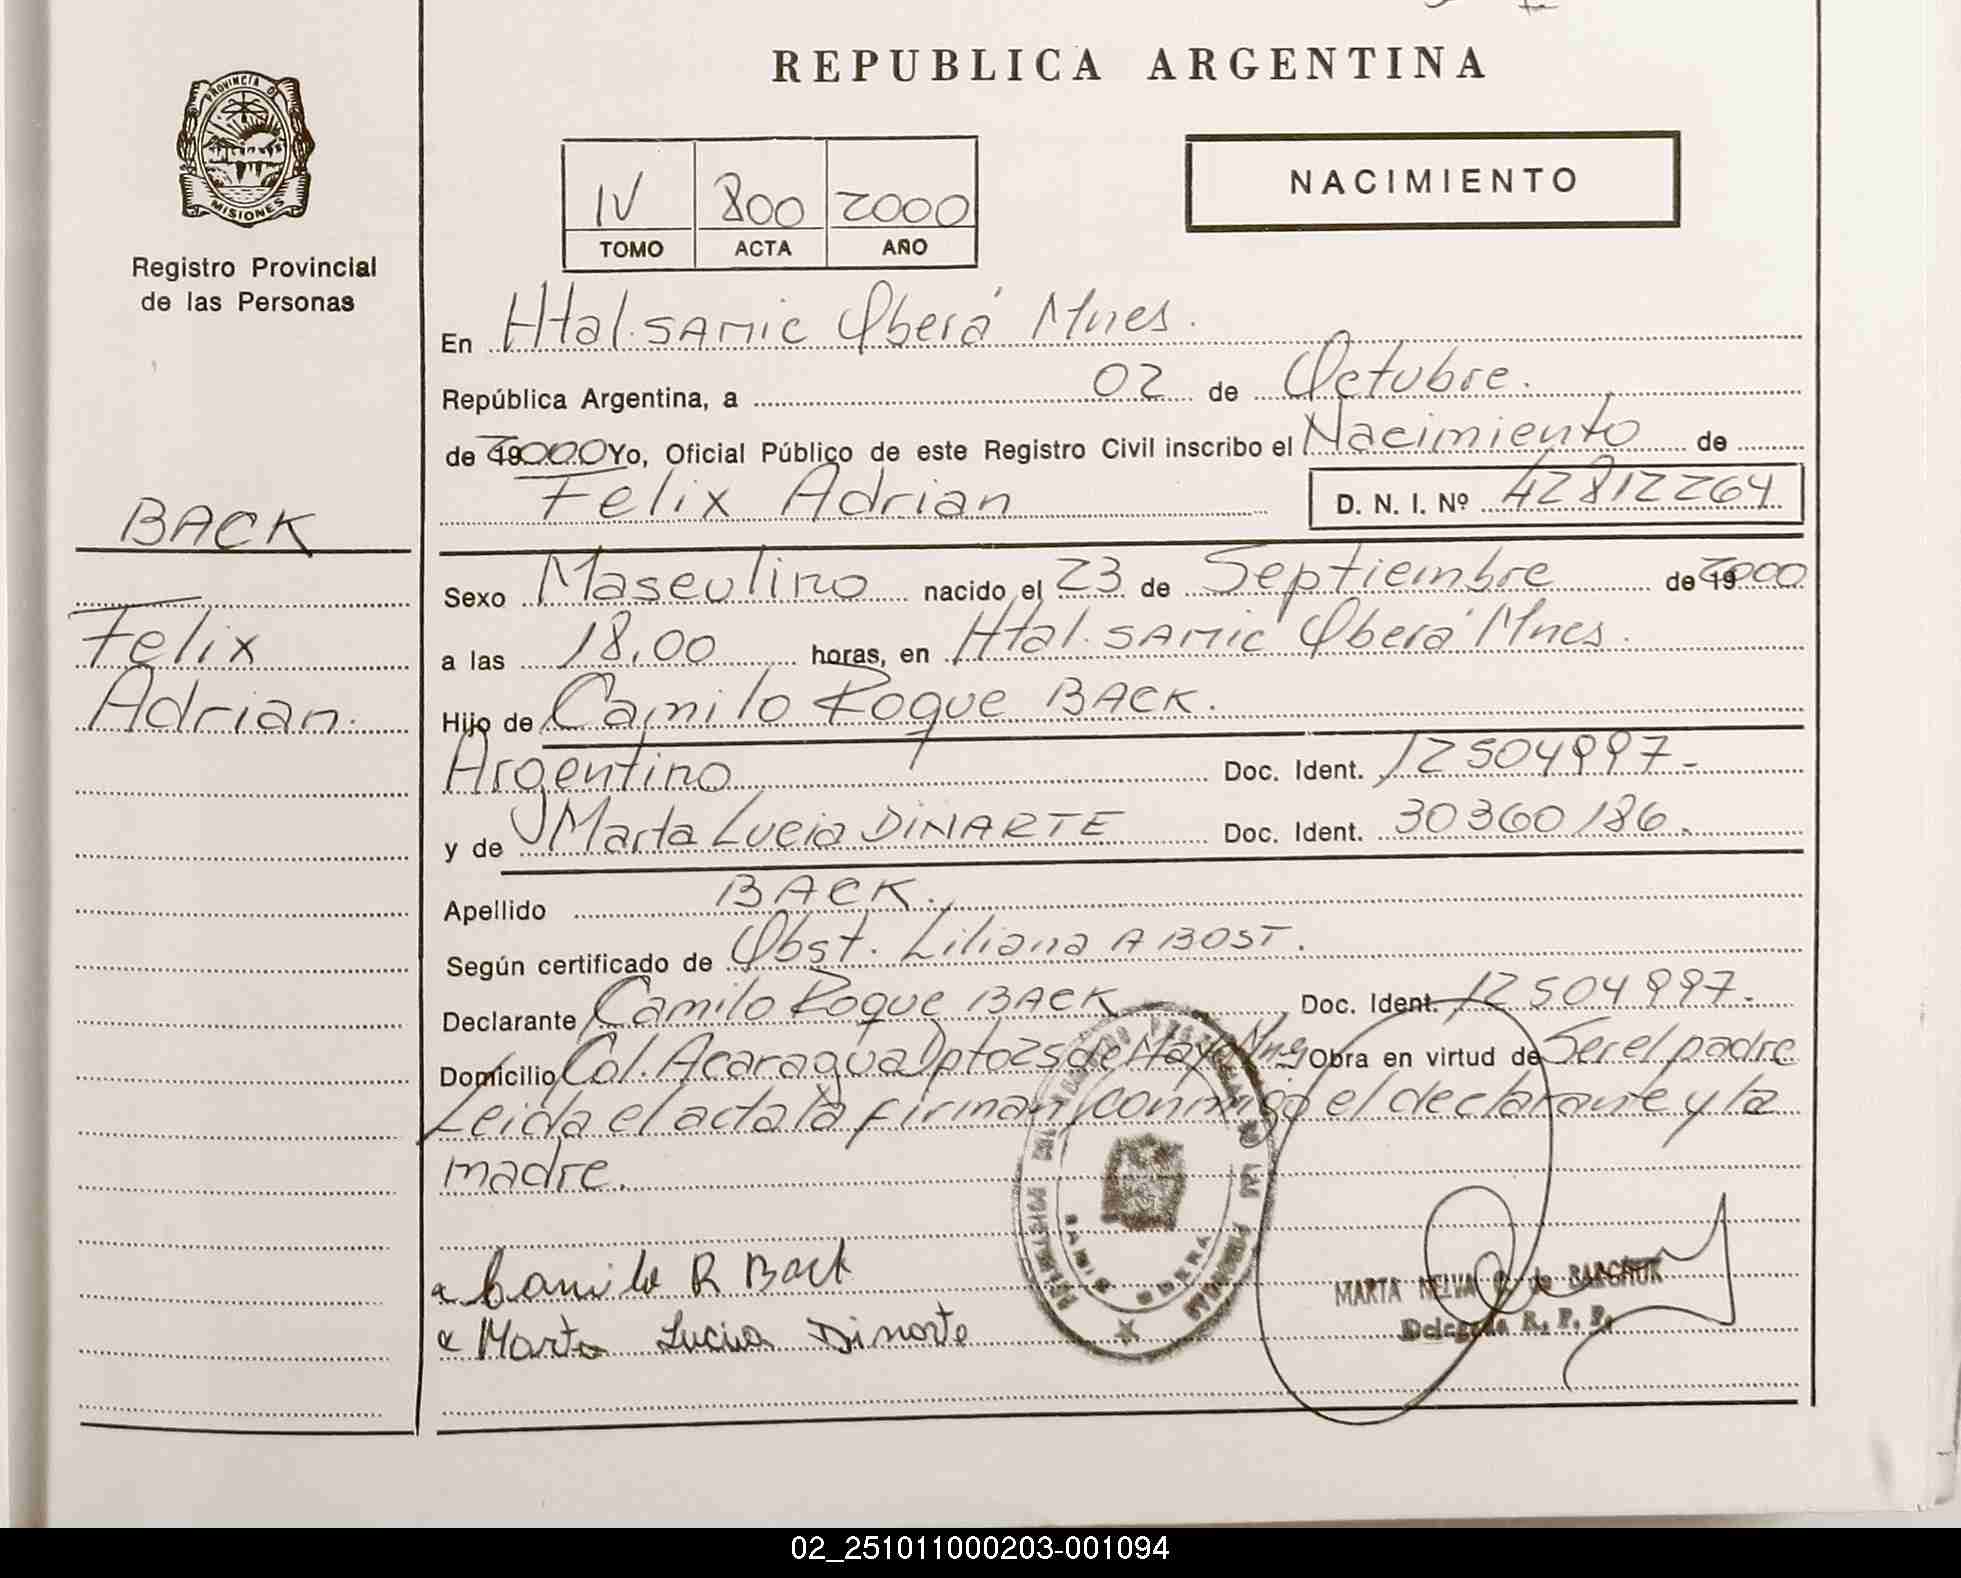 REPUBLICA ARGENTINA
PROVINCIA DE
MISIONES
Registro Provincial
de las Personas
IV 800 2000
TOMO ACTA AÑO
NACIMIENTO
En Htal. SAMIC Oberá Mnes.
República Argentina, a 02 de Octubre.
de 2000 Yo, Oficial Público de este Registro Civil inscribo el Nacimiento de
Felix Adrian D. N. I. Nº 42812264
BACK
Felix
Adrian.
Sexo Masculino nacido el 23 de Septiembre de 2000
a las 18,00 horas, en Htal. SAMIC Oberá Mnes.
Hijo de Camilo Roque BACK.
Argentino Doc. Ident. 12504997-
y de Marta Lucia DINARTE Doc. Ident. 30360186.
Apellido BACK.
Según certificado de Obst. Liliana A BOST.
Declarante Camilo Roque BACK Doc. Ident. 12504997-
Domicilio Col. Acaragua Dpto 25 de Mayo Mnes Obra en virtud de Ser el padre
Leida el acta la firman conmigo el declarante y la
madre.
Camilo R Back
Marta Lucia Dinarte
OBERA
MARTA MELVA de BARCHUK
Delegada R. P. P.
02_251011000203-001094